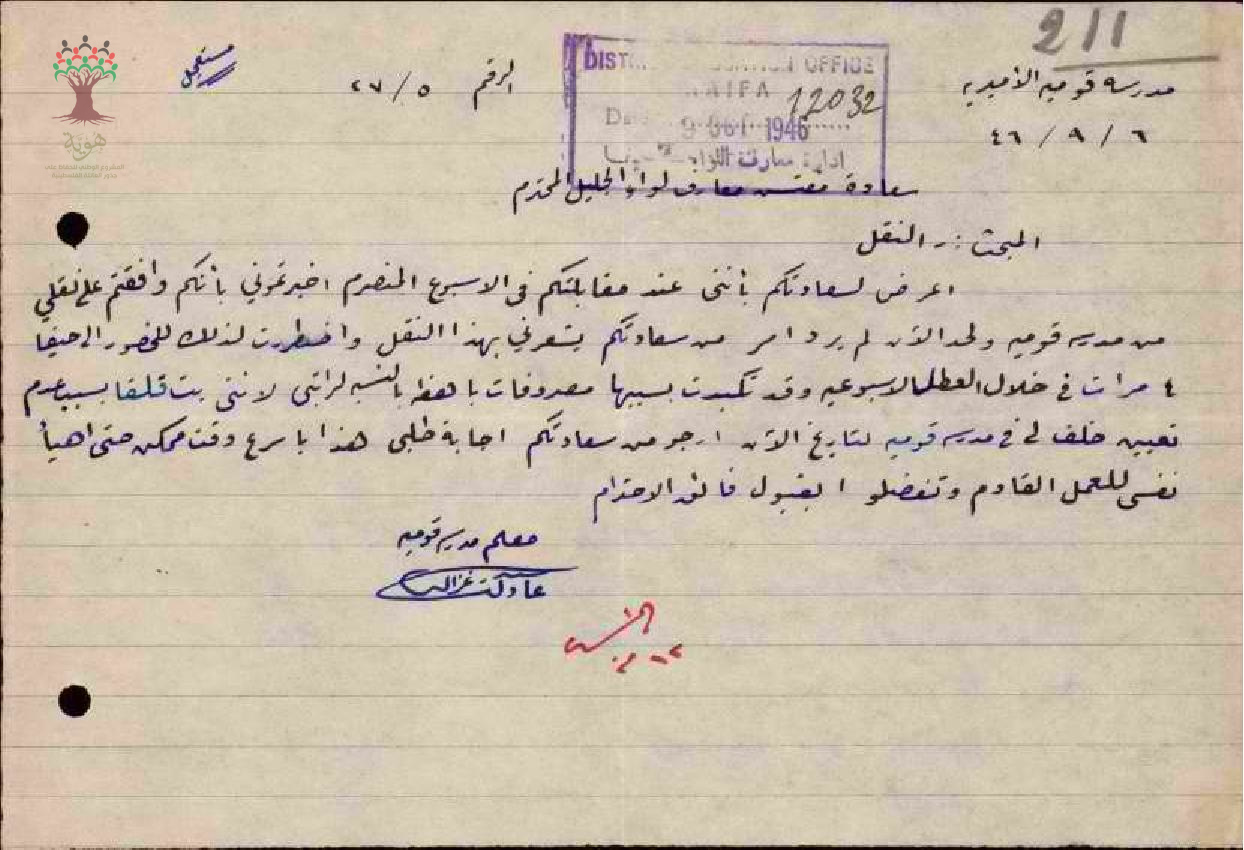 211
مدرسة قوميه الأميريه
الرقم ٢٧/٥
مستعجل
٤٦/٩/٦
DISTRICT EDUCATION OFFICE
HAIFA
12032
Date 9 OCT 1946
ادارة معارف اللواء حيفا
هوية
سعادة مفتش معارف لواء الجليل المحترم
المبحث :- النقل
اعرض لسعادتكم بأنني عند مقابلتكم في الاسبوع المنصرم اخبرتموني بأنكم وافقتم على نقلي
من مدرسة قوميه ولحد الآن لم يرد امر من سعادتكم يشعرني بهذا النقل واضطررت لذلك للحضور الى حيفا
٤ مرات في خلال العطل الاسبوعيه وقد تكبدت بسببها مصروفات باهظه بالنسبه لراتبي لانني بت قلقا بسبب عدم
تعيين خلف لي في مدرسة قوميه لتاريخ الآن ارجو من سعادتكم اجابة طلبي هذا باسرع وقت ممكن حتى اهيأ
نفسي للعمل القادم وتفضلوا بقبول فائق الاحترام
معلم مدرسة قوميه